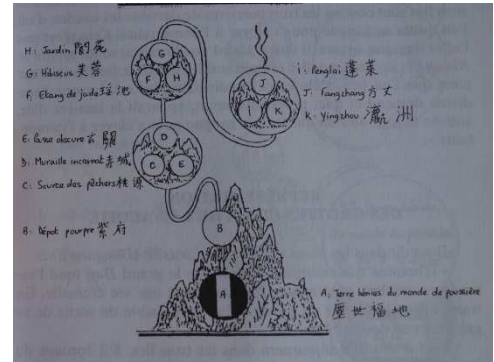 H: Jardin 閬苑
G: Hibiscus 芙蓉
F: Etang de jade 瑶池
E: Passe obscure 玄關
D: Muraille incarnat 赤城
C: Source des pêchers 桃源
B: Dépot pourpre 紫府
G
F H
D
C E
B
A
J
I K
i: Penglai 蓬莱
J: Fangzhang 方丈
K: Yingzhou 瀛洲
A: Terre bénies du monde de poussière
塵世福地